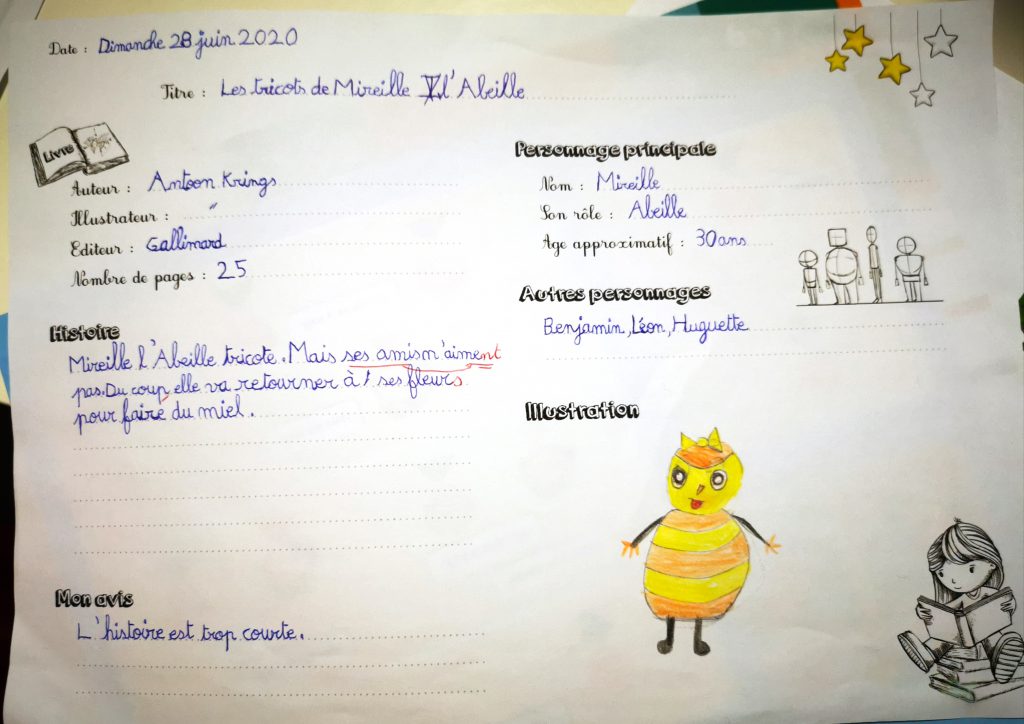 Date : Dimanche 28 juin 2020
Titre : Les tricots de Mireille l'Abeille
LIVRE
Auteur : Antoon Krings
Illustrateur : "
Editeur : Gallimard
Nombre de pages : 25
Histoire
Mireille l'Abeille tricote. Mais ses amis n'aiment
pas. Du coup, elle va retourner à ses fleurs
pour faire du miel.
Mon avis
L'histoire est trop courte.
Personnage principale
Nom : Mireille
Son rôle : Abeille
Age approximatif : 30 ans
Autres personnages
Benjamin, Léon, Huguette
Illustration